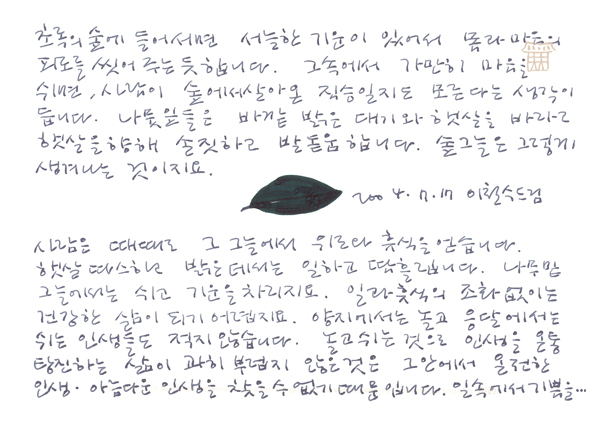 초록의 숲에 들어서면 서늘한 기운이 있어서 몸과 마음의
피로를 씻어 주는듯 합니다. 그속에서 가만히 마음을
쉬면, 사람이 숲에서살아온 짐승일지도 모른다는 생각이
듭니다. 나뭇잎들은 바깥 밝은 대기와 햇살을 바라고
햇살을향해 손짓하고 발돋움합니다. 숲그늘은 그렇게
생겨나는 것이지요.
2004. 7. 17 이철수드림
사람은 때때로 그 그늘에서 위로와 휴식을 얻습니다.
햇살 따스하고 밝은데서는 일하고 땀흘립니다. 나무밑
그늘에서는 쉬고 기운을차리지요. 일과휴식의 조화없이는
건강한 삶이 되기어렵지요. 양지에서는 놀고 응달에서는
쉬는 인생들도 적지 않습니다. 놀고쉬는것으로 인생을 온통
탕진하는 삶이 과히 부럽지 않은것은 그안에서 온전한
인생·아름다운 인생을 찾을수없기때문입니다. 일속에서기쁨을...